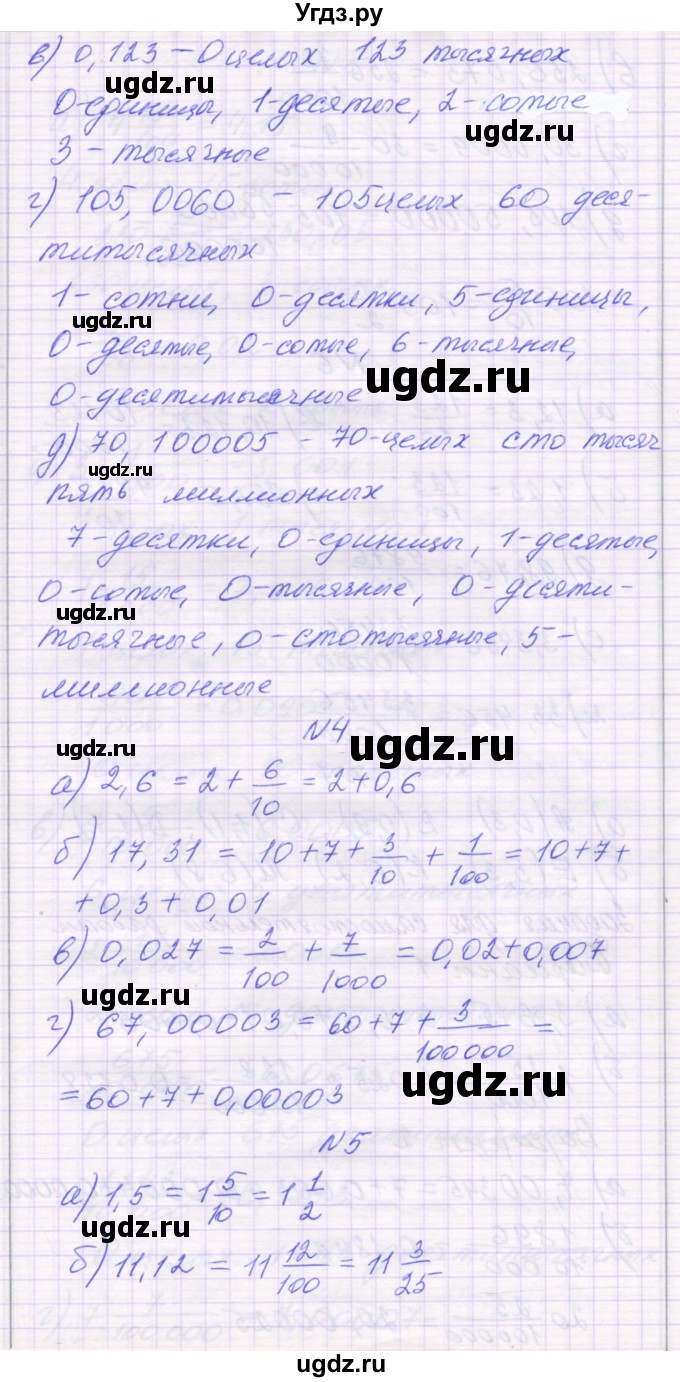 Угдз.ру
в) 0,123 – 0 целых 123 тысячных
0-единицы, 1-десятые, 2-сотые
ugdz.ru
3 – тысячные
г) 105,0060 – 105 целых 60 деся-
титысячных
1- сотни, 0-десятки, 5-единицы,
ugdz.ru
0-десятые, 0-сотые, 6-тысячные,
ugdz.ru
0-десятитысячные
д) 70,100005 – 70-целых сто тысяч
ugdz.ru
пять миллионных
7-десятки, 0-единицы, 1-десятые,
0-сотые, 0-тысячные, 0-десяти-
ugdz.ru
тысячные, 0-стотысячные, 5-
миллионные
N4
ugdz.ru
ugdz.ru
а) 2,6 = 2 + 6/10 = 2+0,6
б) 17,31 = 10+7+ 3/10 + 1/100 = 10+7+
+0,3+0,01
ugdz.ru
в) 0,027 = 2/100 + 7/1000 = 0,02+0,007
ugdz.ru
г) 67,00003 = 60+7+ 3/100000 =
ugdz.ru
=60+7+0,00003
N5
а) 1,5 = 1 5/10 = 1 1/2
ugdz.ru
б) 11,12 = 11 12/100 = 11 3/25
ugdz.ru